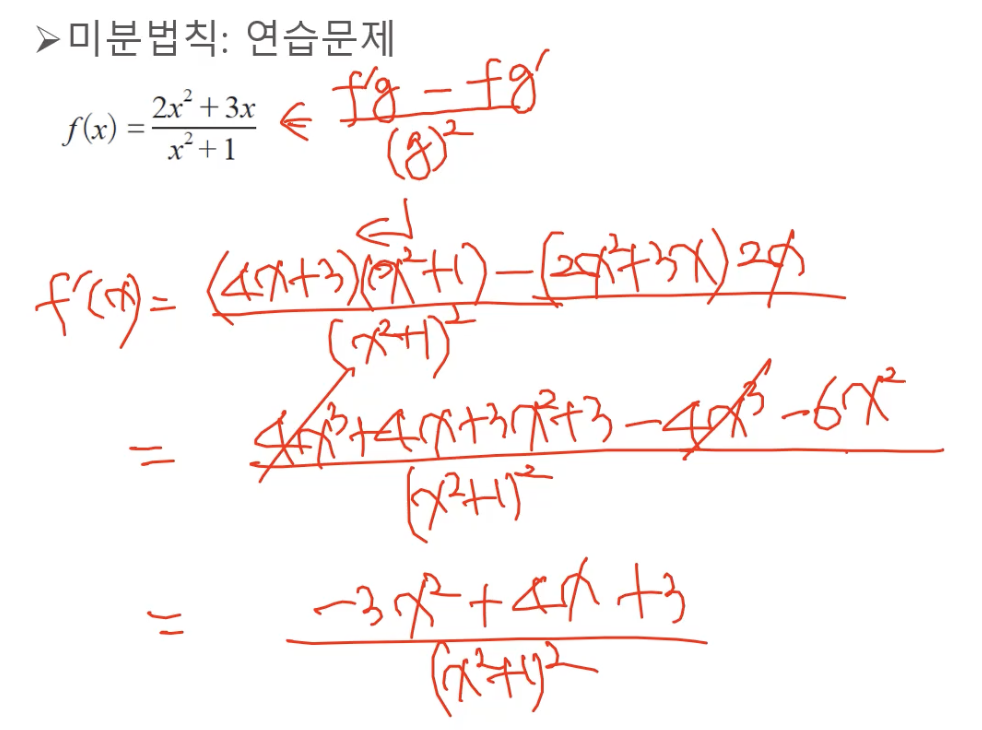 ➤미분법칙: 연습문제
f(x) = (2x² + 3x)/(x² + 1) ⇐ (f'g - fg')/(g)²
f'(x) = ((4x+3)(x²+1) - (2x²+3x)2x)/(x²+1)²
= (4x³+4x+3x²+3-4x³-6x²)/(x²+1)²
= (-3x²+4x+3)/(x²+1)²